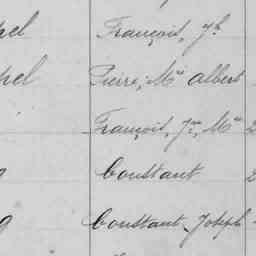 pel François, Jh
pel Pierre, Me Albert
François, Jn, Me 2
g Constant 2
g Constant, Joseph